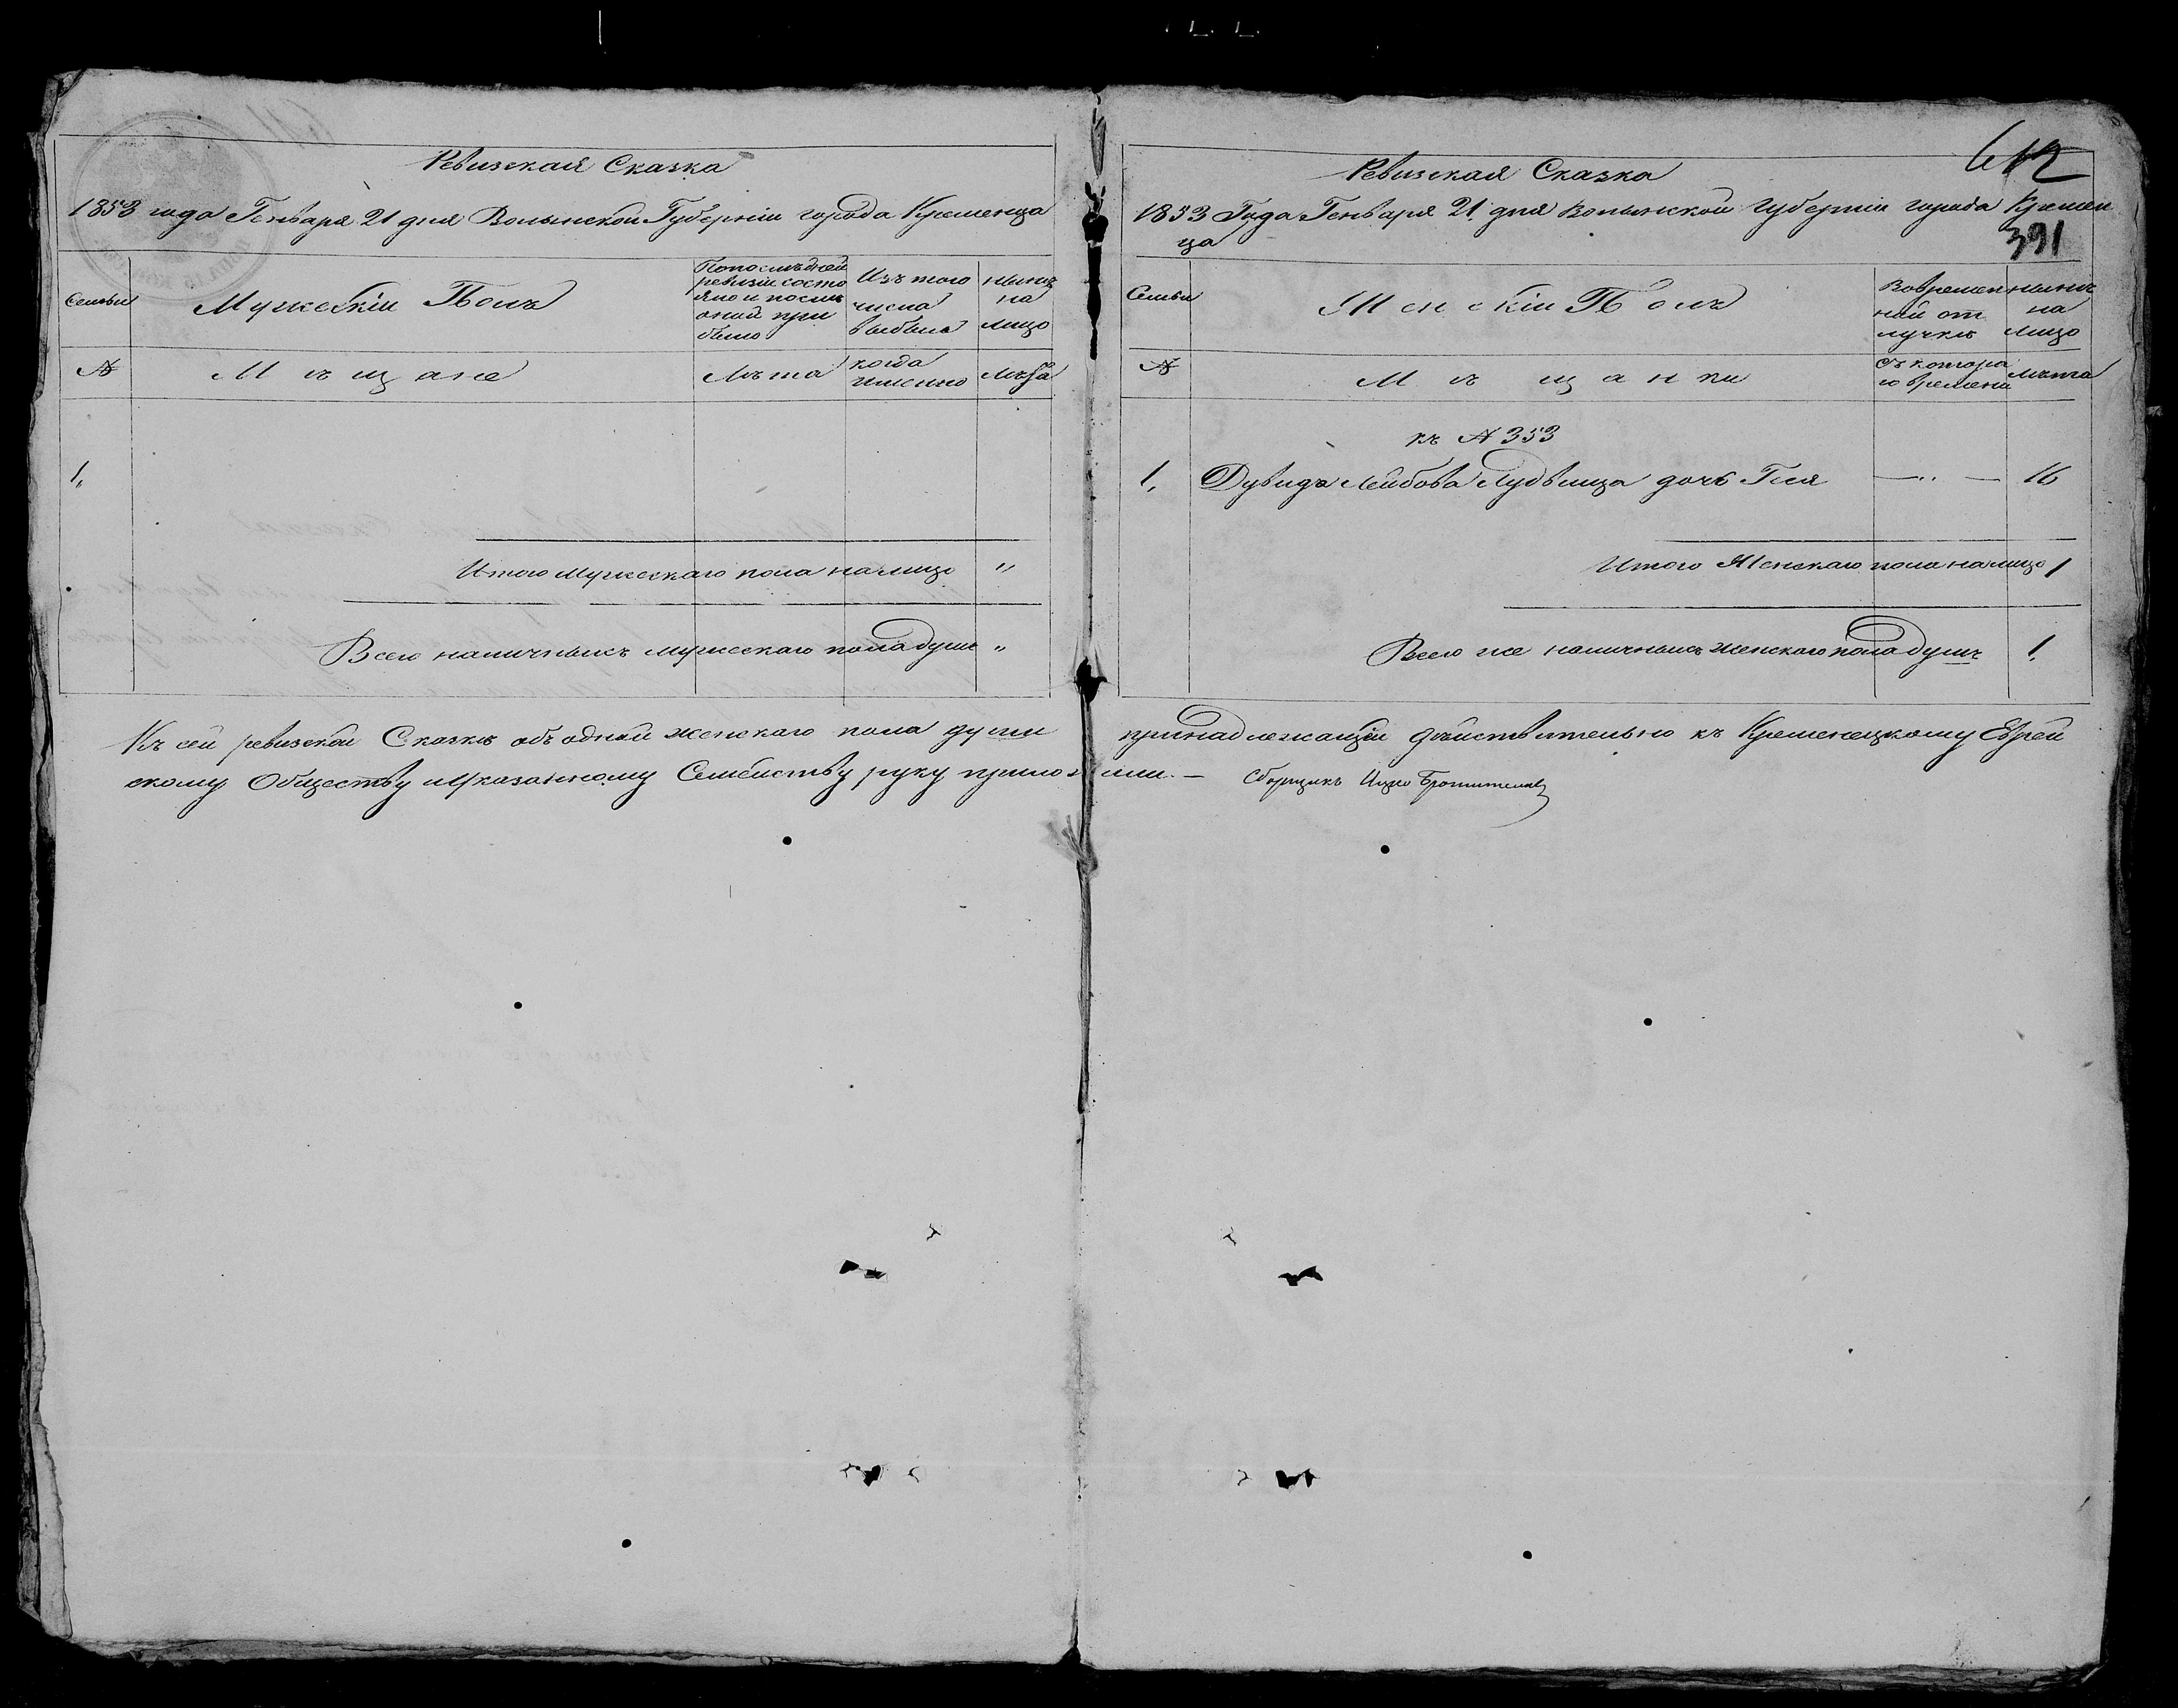 Ревизская Сказка
1853 года Генваря 21 дня Волынской Губерніи города Кременца
Семьи
Мужескій Полъ
По последней
ревизіи состо
яло и после
оной при
было
Изъ того
числа
выбыло
ныне
на
лицо
№
Мѣщане
Лѣта
когда
именно
Лѣта
1.
Итого Мужескаго пола налицо "
Всего наличныхъ мужескаго пола душъ "
612
Ревизская Сказка
1853 Года Генваря 21 дня Волынской Губерніи города Кремен
ца
391
Семьи
Женскій Полъ
Вовремен
ной от
лучкѣ
нынѣ
на
лицо
№
Мѣщанки
Съ котора
го времени
лѣта
къ № 353
1. Дувида Лейбова Лудвица дочь Гися — " — 16
Итого Женскаго пола налицо 1
Всего же наличныхъ женскаго пола душъ 1.
Къ сей ревизской Сказкѣ объ одной женскаго пола души принадлежащей дѣйствительно къ Кременецкому Еврей
скому Обществу и указанному Семейству руку приложили. — Сборщикъ Ицко